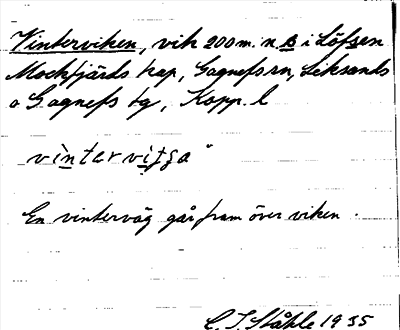 Vinterviken, vik 200 m. n. B i Löfsen
Mockfjärds kap, Gagnefs sn, Leksands
o Gagnefs tg, Kopp. l
vìntervi̠tʃa"
En vinterväg går fram över viken.
C. I. Ståhle 1935